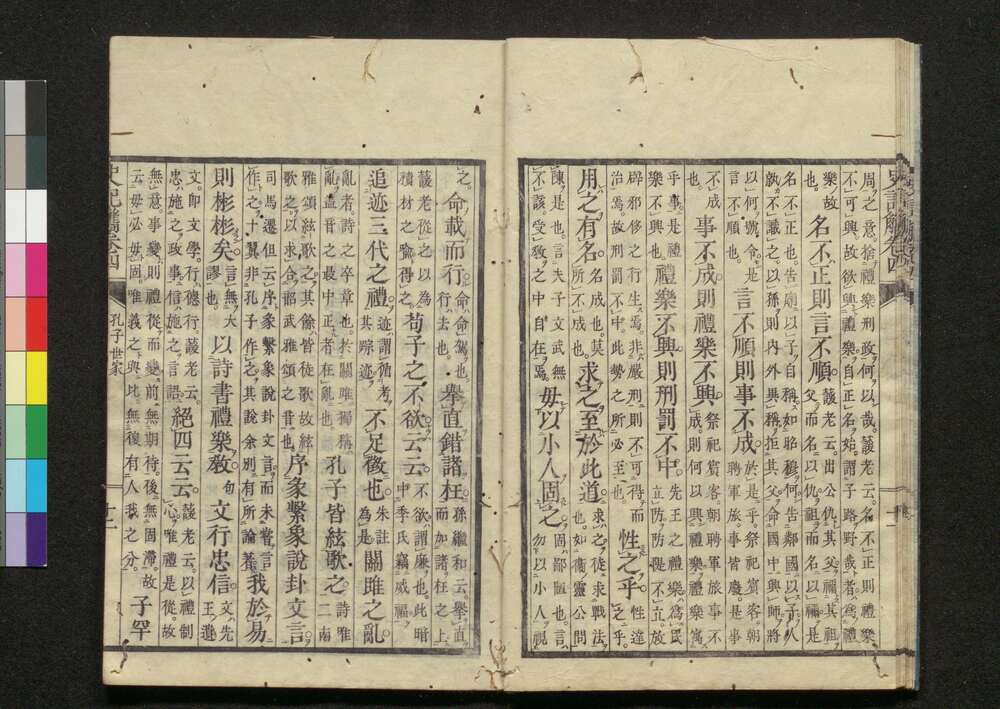 周之意捨禮樂刑政何以哉諼老云名不正則禮樂
不可興故欲興禮樂自正名始謂子路野哉者爲禮
樂故也 名不正則言不順 諼老云出公仇其父禰其祖
父而名以仇祖而名以禰是
名不正也告廟以子自稱如昭穆何告鄰國以子人
孰不識之以孫則內外興稱拒其父命國中興師將
以何號令是
以不順也 言不順則事不成 於是乎祭祀賓客朝
聘軍旅事皆廢是事
不成
也 事不成則禮樂不興 祭祀賓客朝聘軍旅事不
成則何以興禮樂禮樂寓
乎事是禮
樂不興也 禮樂不興則刑罰不中 先王之禮樂爲民
立防防隄不立故
辟邪侈之行生焉非嚴刑則不可得而
治焉故刑罰不中也勢之所必至也 性之乎 性達
之乎
用之有名 名成也莫
所不成也 求之至於此道 求之從求戰法
也如衞靈公問
陳是也言夫子文武無
不該受敎之中自在焉 毋以小人固之 固鄙陋也言
勿以小人視
之 命載而行 命命駕也
行去也 擧直錯諸枉 孫繼和云擧直
而加諸枉之上
諼老從之以爲
積材之喩得之 苟子之不欲云云 不欲謂廉也此暗
中季氏竊威福
追迹三代之禮 迹謂循考
其踪迹 不足徵也 朱註
爲是 關雎之亂
亂者詩之卒章也於關雎獨稱
亂蓋音之最中正者在亂也 孔子皆絃歌之 詩唯
二南
雅頌絃歌之其餘皆徒歌故絃
歌之以求合韶武雅頌之音也 序彖繫象說卦文言
司馬遷但云序彖繫象說卦文言而未嘗言
作之十翼非孔子作之其說余別有所論著 我於易
則彬彬矣 言無大
謬也 以詩書禮樂敎句 文行忠信 文先
王遺
文即文學行德行諼老云
忠施之政事信施之言語 絕四云云 諼老云以禮制
心唯禮是從故
無意事變則禮從而變前無期待後無固滯故
云毋必毋固唯義之與比無後有人我之分 子罕
史記觽卷四 孔子世家 十二